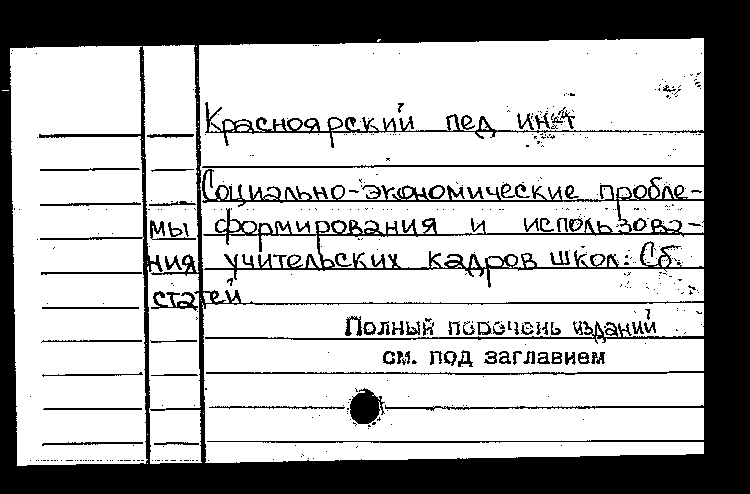 Красноярский пед ин-т
Социально-экономические пробле-
мы формирования и использова-
ния учительских кадров школ: Сб.
статей
Полный перечень изданий
см. под заглавием